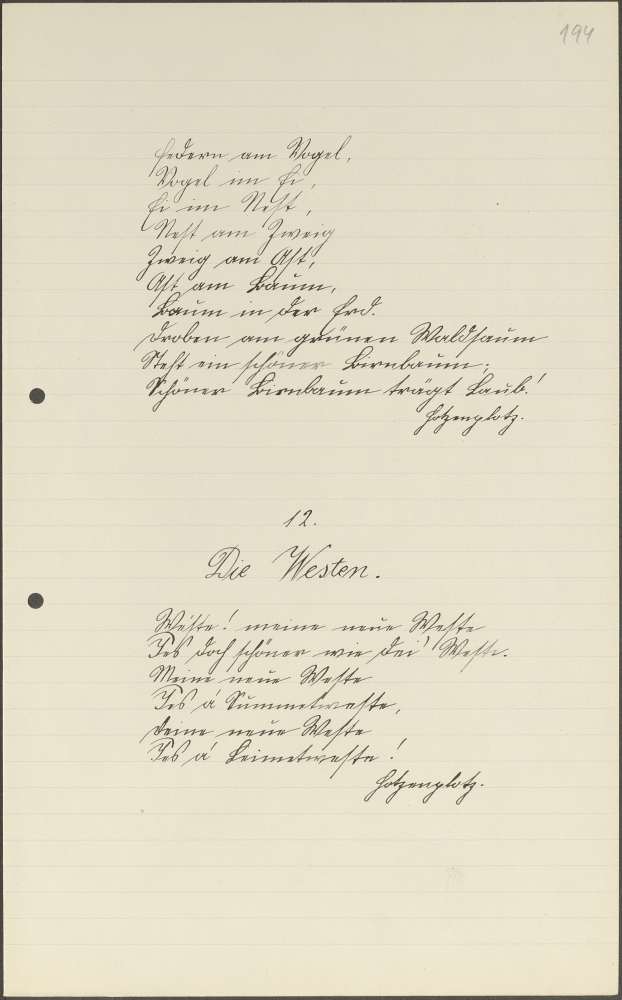 194
Federn am Vogel,
Vogel im Ei,
Ei im Nest,
Nest am Zweig
Zweig am Ast,
Ast am Baum,
Baum in der Erd.
Droben am grünen Waldsaum
Steht ein schöner Birnbaum;
Schöner Birnbaum trägt Laub!
Hotzenplotz.
12.
Die Westen.
Weste! meine neue Weste
Jes doch schöner wie dei' Weste.
Meine neue Weste
Jes á Summetweste,
Deine neue Weste
Jes á Leimetweste!
Hotzenplotz.